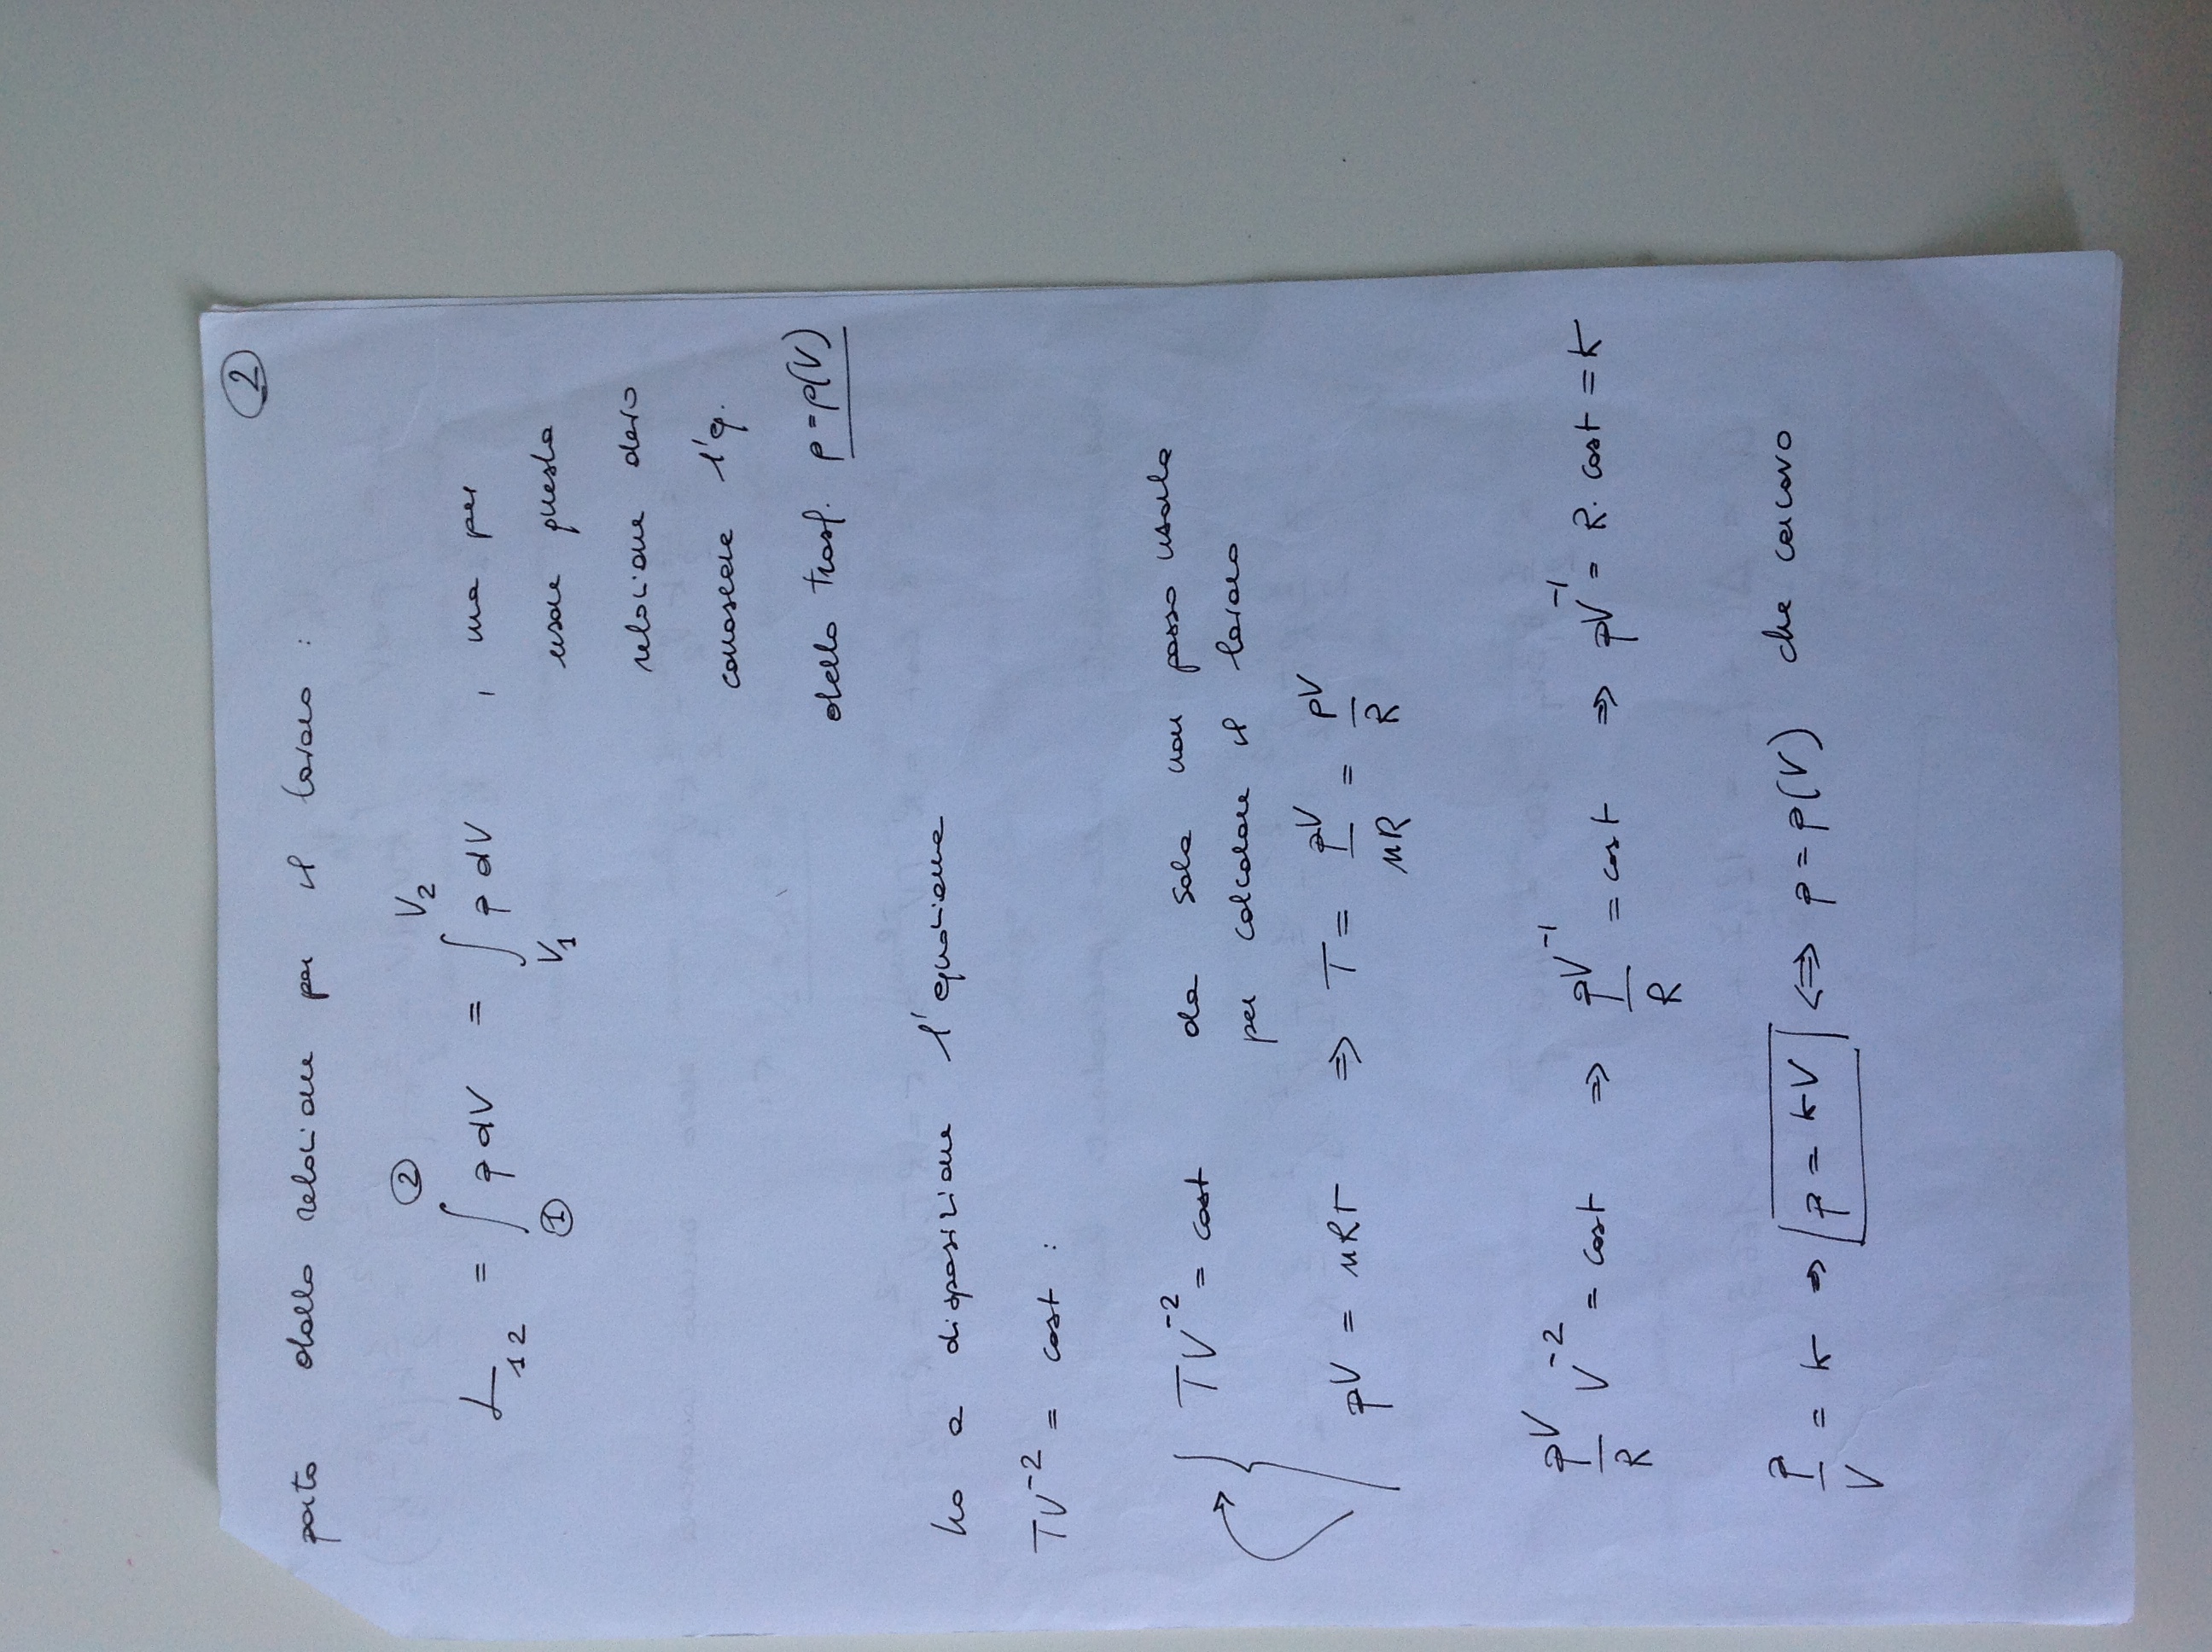 2
parto dalla relazione per il lavoro :
L₁₂ = ∫_①^② p dV = ∫_{V₁}^{V₂} p dV , ma per
usare questa
relazione devo
conoscere l'eq.
della trasf. p=p(V)
ho a disposizione l'equazione
TV⁻² = cost :
TV⁻² = cost da sola non posso usarla
per calcolare il lavoro
pV = nRT ⇒ T = pV/nR = pV/R
pV/R V⁻² = cost ⇒ pV⁻¹/R = cost ⇒ pV⁻¹ = R· cost = k
p/V = k ⇒ p = kV ⇔ p = p(V) che cercavo